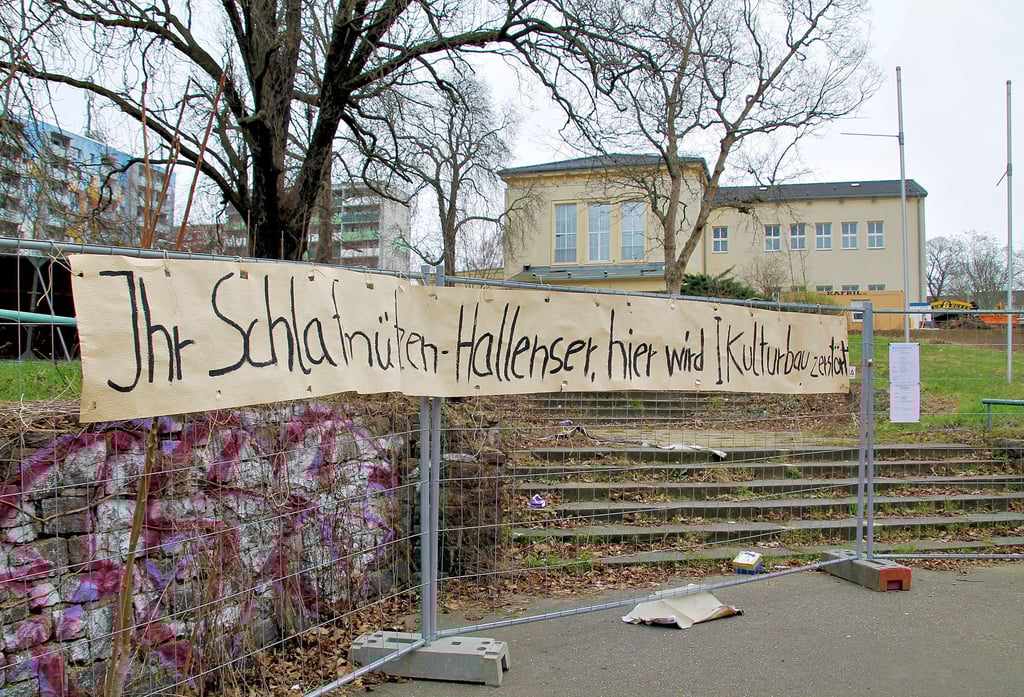 Ihr Schlafmützen-Hallenser, hier wird 1 Kulturbau zerstört